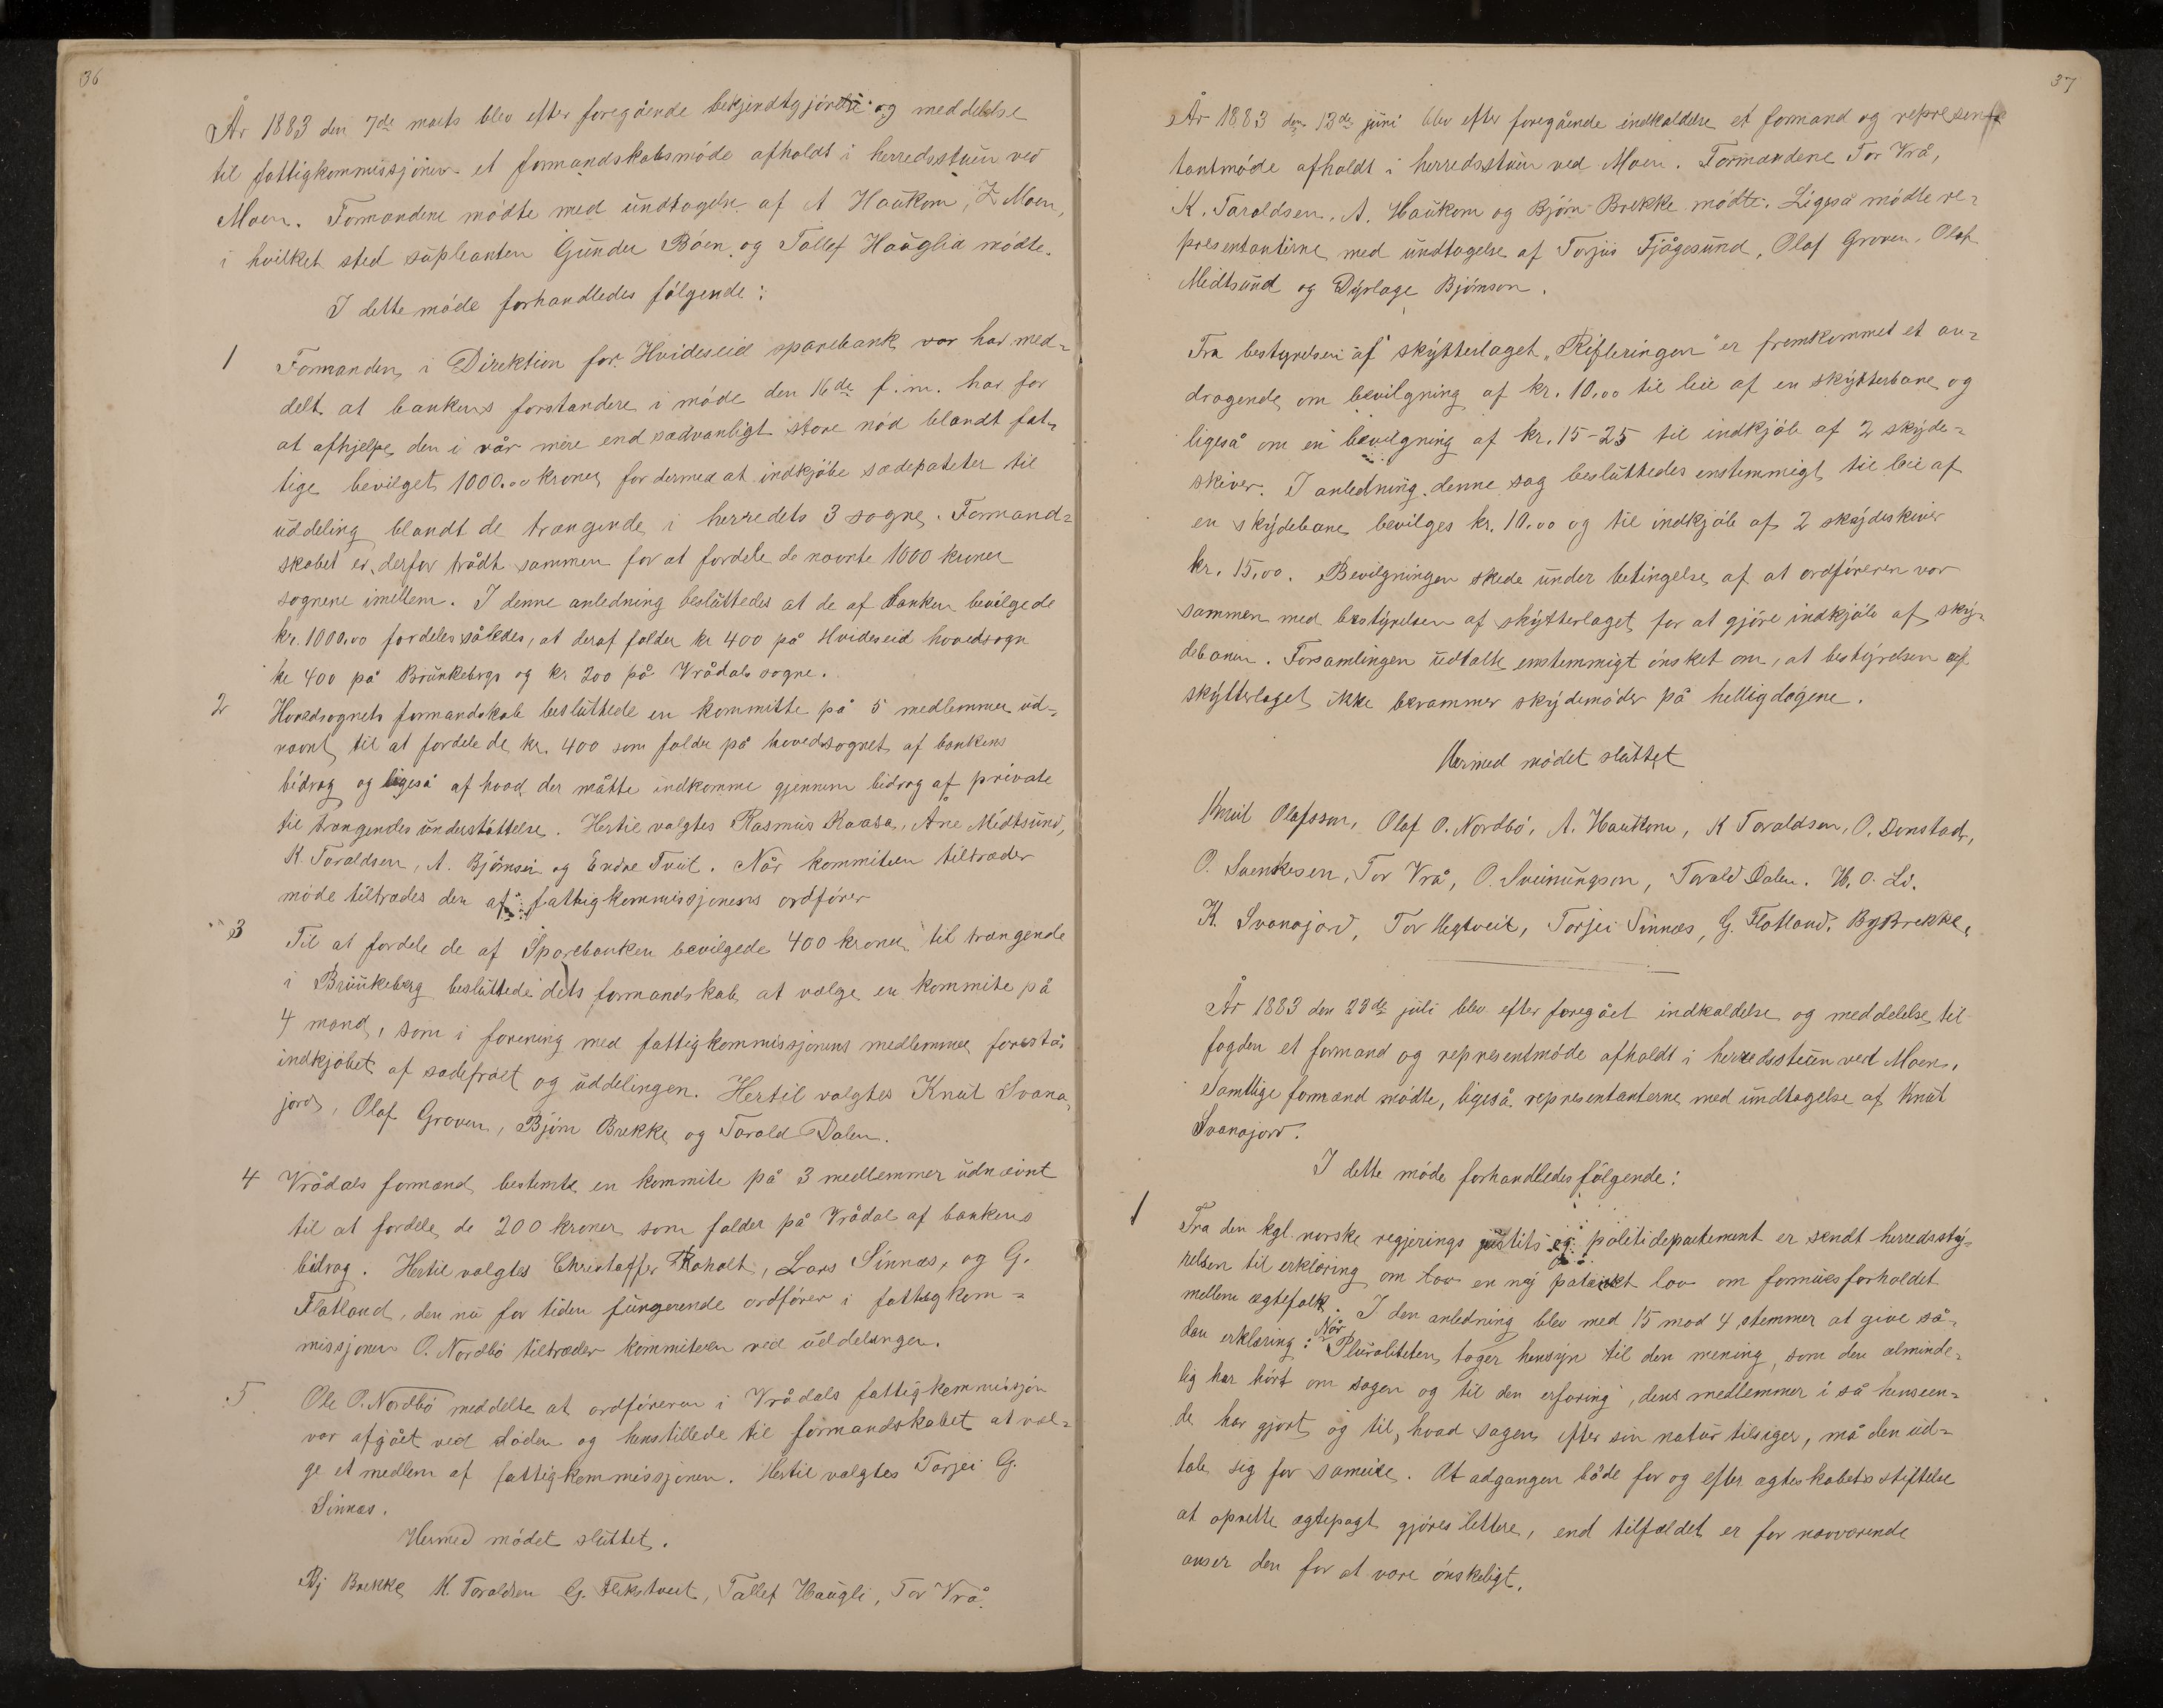 36
År 1883 den 7de marts blev efter foregående bekjendtgjórelse og meddelelse
til fattigkommissjónen et formandskabsmóde afholdt i herredsstuen ved
Moen. Formandene módte med undtagelse af A Haukom, Z Moen,
i hvilket sted supleanten Gunder Bóen og Tallef Hauglid módte.
I dette móde forhandledes fólgende:
1 Formanden i Direktion for Hvideseid sparebank vor har med=
delt at bankens forstandere i móde den 16de f. m. har for
at afhjelpe den i vår mere end sædvanligt store nód blandt fat=
tige bevilget 1000.00 kroner for dermed at indkjóbe sædepoteter til
uddeling blandt de trængende i herredets 3 sogne. Formand=
skabet er derfor trådt sammen for at fordele de nævnte 1000 kroner
sognene imellem. I denne anledning besluttedes at de af banken bevilgede
kr. 1000.00 fordeles således, at deraf falder kr 400 på Hvideseid hovedsogn
kr 400 på Brunkebergs og kr 200 på Vrådals sogne.
2 Hovedsognets formandskab besluttede en kommitte på 5 medlemmer ud=
nævnt til at fordele de kr. 400 som falder på hovedsognet af bankens
bidrag og ligeså af hvad der måtte indkomme gjennem bidrag af private
til trængendes understóttelse. Hertil valgtes Rasmus Kaasa, Åne Midtsund,
K. Taraldsen, A. Bjórnsen og Endre Tveit. Når kommiteen tiltræder
móde tiltrædes den af fattigkommissjonens ordfórer
3 Til at fordele de af Sparebanken bevilgede 400 kroner til trængende
i Brunkeberg besluttede dets formandskab at vælge en kommite på
4 mand, som i forening med fattigkommissjonens medlemmer forestår
indkjóbet af sædefróet og uddelingen. Hertil valgtes Knut Svana=
jord, Olaf Groven, Bjórn Brekke og Tarald Dalen.
4 Vrådals formænd bestemte en kommite på 3 medlemmer udnævnt
til at fordele de 200 kroner som falder på Vrådal af bankens
bidrag. Hertil valgtes Christaffer Roholt, Lars Sinnæs, og G.
Flatland, den nu for tiden fungerende ordfórer i fattigkom=
missjonen O. Nordbó tiltræder kommiteen ved uddelingen.
5 Ole O. Nordbó meddelte at ordfóreren i Vrådals fattigkommissjon
var afgået ved dóden og henstillede til formandskabet at væl=
ge et medlem af fattigkommissjonen. Hertil valgtes Torjei G.
Sinnæs.
Hermed módet sluttet.
Bj Brekke K. Taraldsen G. Flekstveit, Tallef Haugli, Tor Vrå.
37
År 1883 den 13de juni blev efter foregående indkaldelse et formand og represen
tantmóde afholdt i herredsstuen ved Moen. Formændene Tor Vrå,
K. Taraldsen, A. Haukom og Bjórn Brekke módte. Ligeså módte re=
presentanterne med undtagelse af Torjus Fjågesund, Olaf Groven, Olaf
Midtsund og Dyrlage Bjórnson.
Fra bestyrelsen af skytterlaget "Rifleringen" er fremkommet et an=
dragende om bevilgning af kr. 10.00 til leie af en skytterbane og
ligeså om en bevilgning af kr. 15-25 til indkjób af 2 skyde=
skiver. I anledning denne sag besluttedes enstemmigt til leie af
en skydebane bevilges kr. 10.00 og til indkjób af 2 skydeskiver
kr. 15.00. Bevilgningen skede under betingelse af at ordfóreren var
sammen med bestyrelsen af skytterlaget for at gjóre indkjób af sky=
debanen. Forsamlingen udtalte enstemmigt ónsket om, at bestyrelsen af
skytterlaget ikke berammer skydemóder på helligdagene.
Hermed módet sluttet
Knut Olafsson, Olaf O. Nordbó, A. Haukom, K Taraldsen, O. Donstad,
O. Svenkesen, Tor Vrå, O. Sveinungson, Tarald Dalen. H. O. Li.
K. Svanajord, Tor Hegtveit, Torjei Sinnæs, G. Flatland. Bj Brekke.
År 1883 den 23de juli blev efter foregået indkaldelse og meddelelse til
fogden et formand og representmóde afholdt i herredsstuen ved Moen.
Samtlige formænd módte, ligeså representanterne med undtagelse af Knut
Svanajord.
I dette móde forhandledes fólgende:
1 Fra den kgl. norske regjerings justits og politidepartement er sendt herredssty=
relsen til erklæring om en ny lov om formuesforholdet
mellem ægtefolk. I den anledning blev med 15 mod 4 stemmer at give så=
dan erklæring: Når Pluraliteten tager hensyn til den mening, som den alminde=
lig har hórt om sagen og til den erfaring, dens medlemmer i så henseen=
de har gjort og til, hvad sagen efter sin natur tilsiger, må den ud=
tale sig for sameie. At adgangen både for og efter ægteskabets stiftelse
at oprette ægtepagt gjóres lettere, end tilfældet er for nærværende
anser den for at være ónskeligt.